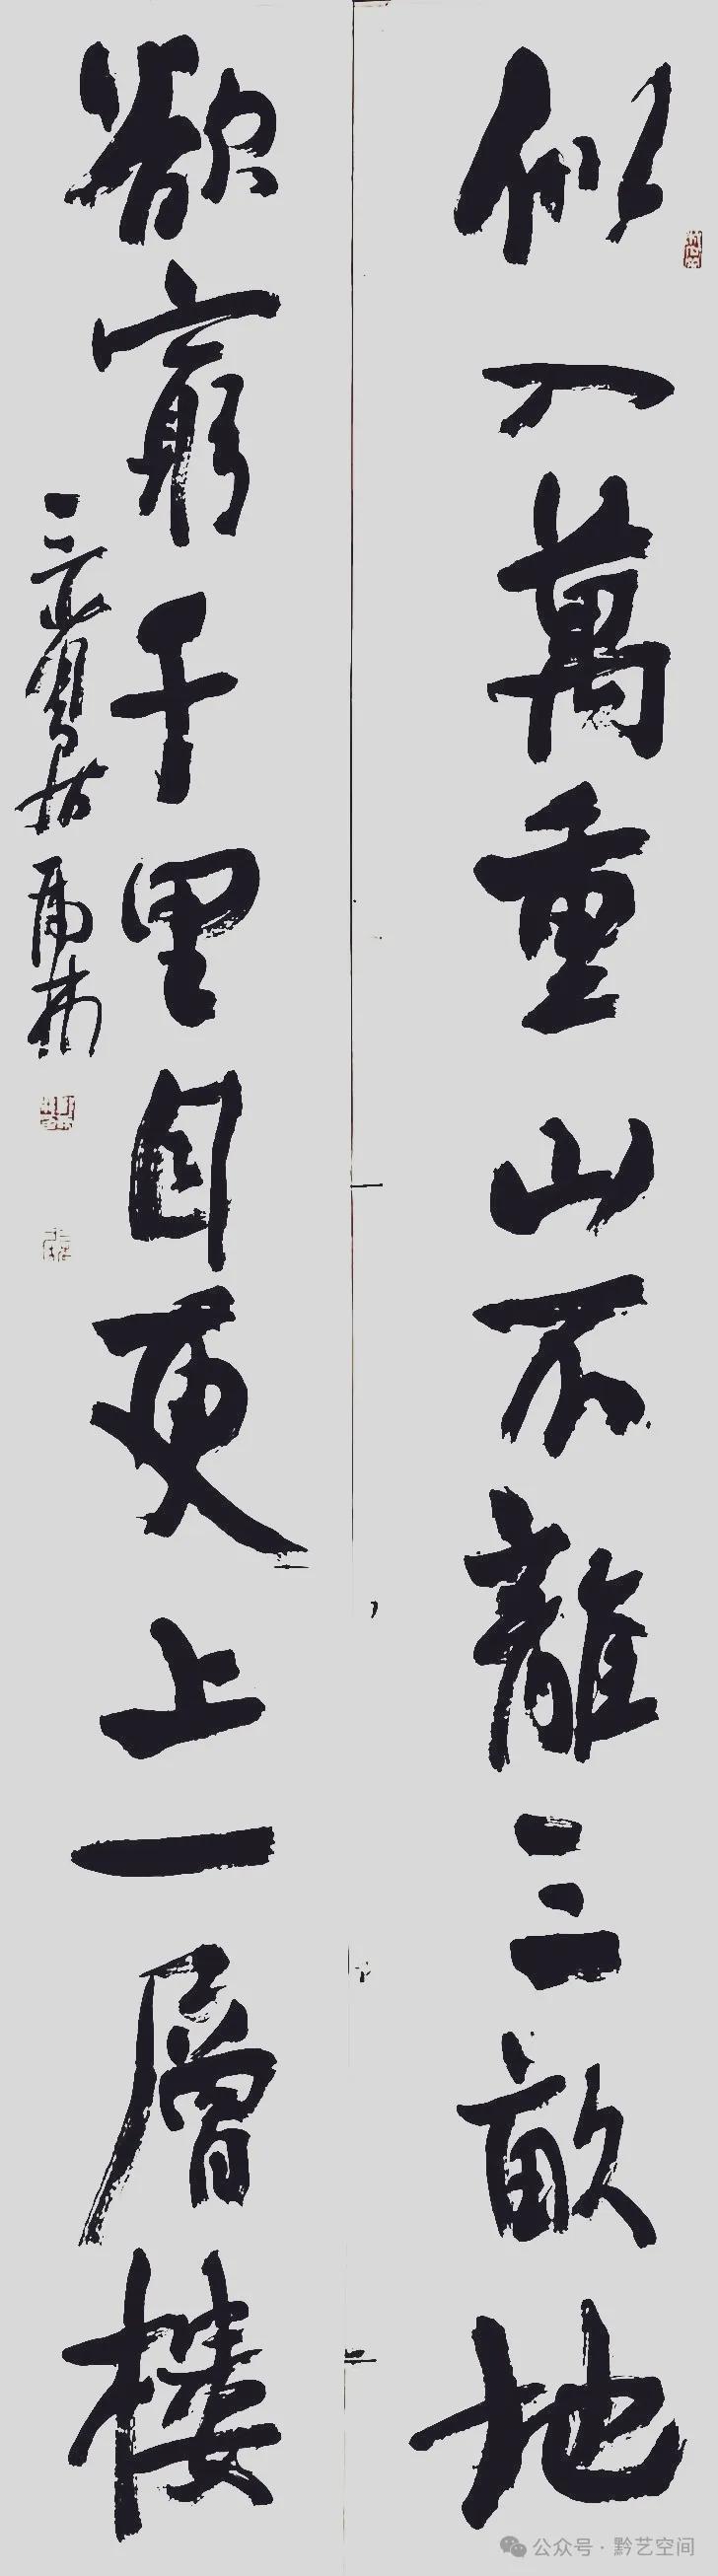 似入萬重山不離三畝地
欲窮千里目更上一層樓
公众号·黔艺空间